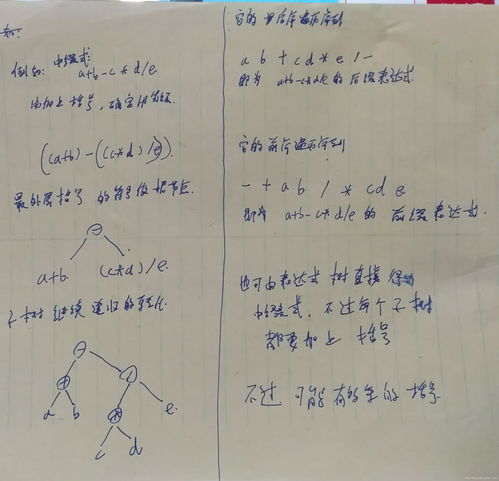 如:
例如: 中缀式:
a+b-c*d/e
①加上括号,确定优先级
((a+b)-((c*d)/e))
最外层括号的符号做根节点
-
a+b. (c*d)/e.
子树继续递归的转化
-
+ /
a b * e.
c d
它的后序遍历序列
a b + c d * e / -
即为 a+b-c*d/e 的后缀表达式
它的前序遍历序列
- + a b / * c d e
即为 a+b-c*d/e 的 前缀表达式.
也可由表达式树直接得到
中缀式, 不过每个子树
都要加上 括号
不过 可能有多余的括号